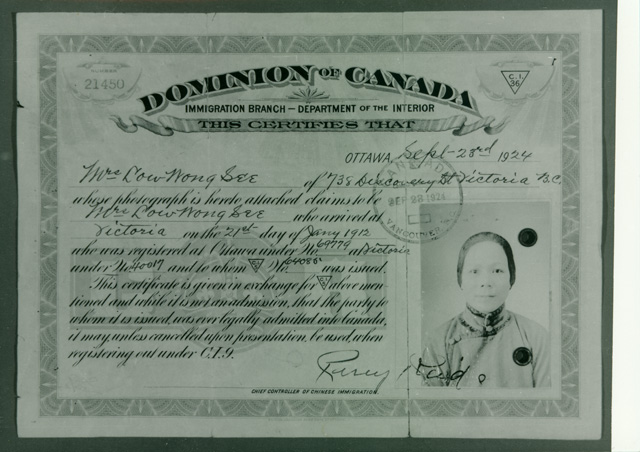 NUMBER
21450
C.I. 36
DOMINION OF CANADA
IMMIGRATION BRANCH — DEPARTMENT OF THE INTERIOR
THIS CERTIFIES THAT
OTTAWA, Sept-23rd 1924
Mrs Low Wong See of 738 Discovery St Victoria B.C.
whose photograph is hereto attached claims to be
Mrs Low Wong See who arrived at
Victoria on the 21st day of Jany 1912
who was registered at Ottawa under No. 69779 at Victoria
under No. 40017 and to whom C.I. No. 64085 was issued.
This certificate is given in exchange for C.I. above men
tioned and while it is not an admission, that the party to
whom it is issued, was ever legally admitted into Canada,
it may, unless cancelled upon presentation, be used, when
registering out under C.I.9.
CHIEF CONTROLLER OF CHINESE IMMIGRATION
VANCOUVER